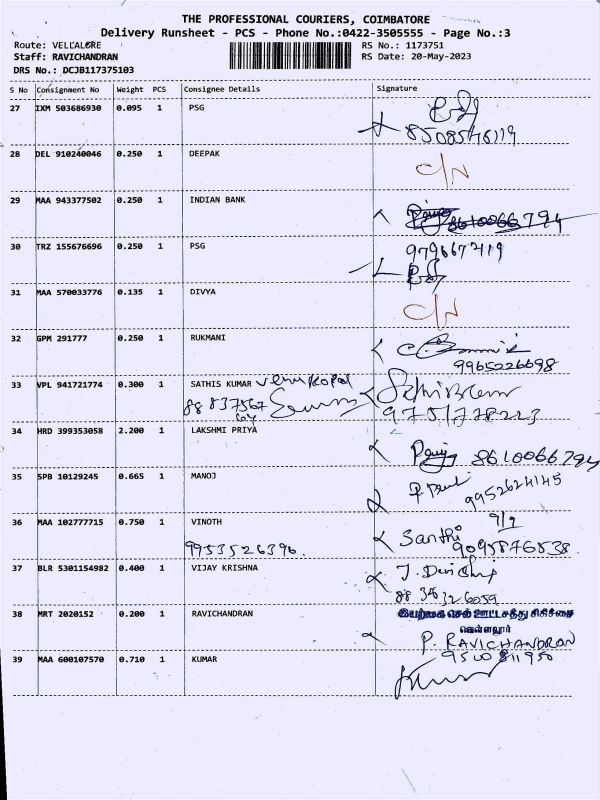 THE PROFESSIONAL COURIERS, COIMBATORE
Delivery Runsheet - PCS - Phone No.:0422-3505555 - Page No.:3
Route: VELLALORE RS No.: 1173751
Staff: RAVICHANDRAN RS Date: 20-May-2023
DRS No.: DCJB117375103
S No Consignment No Weight PCS Consignee Details Signature
27 IXM 503686930 0.095 1 PSG
8508576119
28 DEL 910240046 0.250 1 DEEPAK
C/N
29 MAA 943377502 0.250 1 INDIAN BANK
8610066794
30 TRZ 155676696 0.250 1 PSG
31 MAA 570033776 0.135 1 DIVYA
C/N
32 GPM 291777 0.250 1 RUKMANI
9965226698
33 VPL 941721774 0.300 1 SATHIS KUMAR
9751778223
34 HRD 399353058 2.200 1 LAKSHMI PRIYA
8610066794
35 SPB 10129245 0.665 1 MANOJ
9952624145
36 MAA 102777715 0.750 1 VINOTH
9953526396. Santhi
9095876538
37 BLR 5301154982 0.400 1 VIJAY KRISHNA
38 MRT 2020152 0.200 1 RAVICHANDRAN
வெள்ளலூர்
P. RAVICHANDRAN
9500811950
39 MAA 600107570 0.710 1 KUMAR